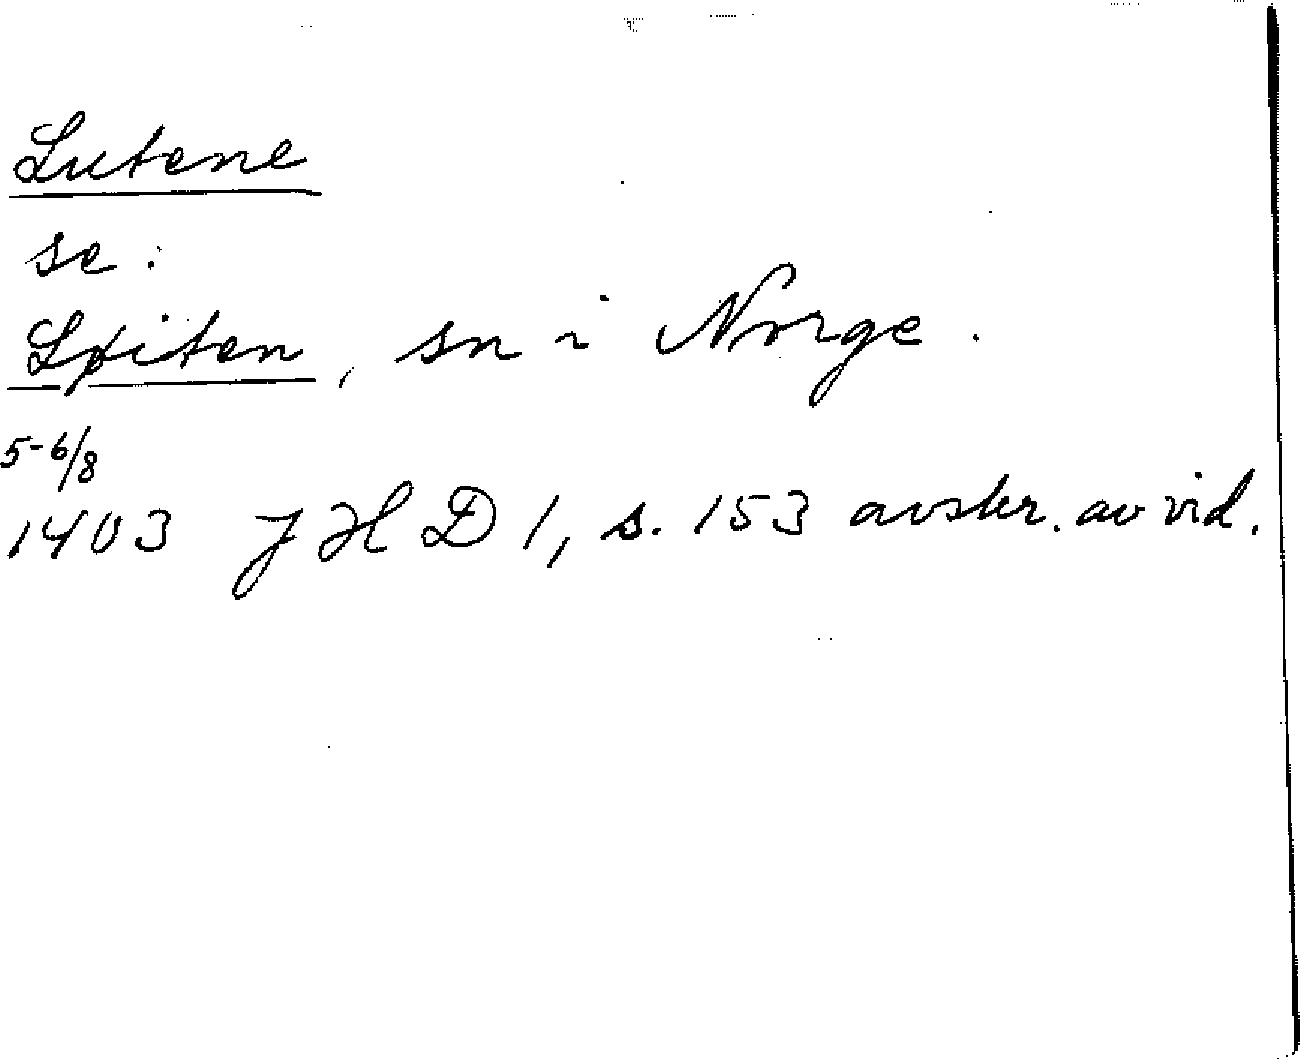 Lutene
se:
Løiten, sn i Norge.
5-6/8
1403 JHD 1, s. 153 avskr. av vid.